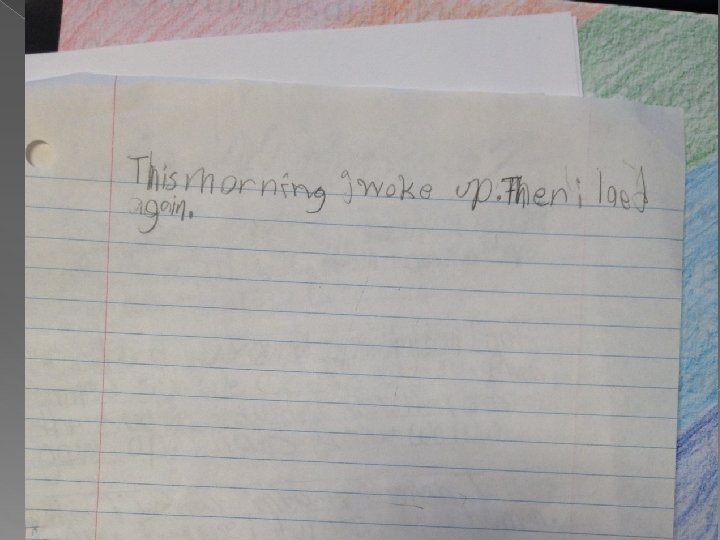 This morning I woke up. Then i laed
again.